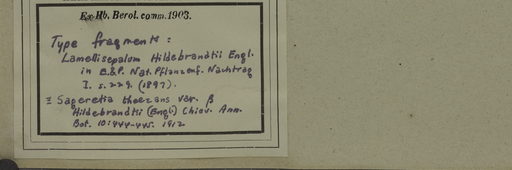 Ex Hb. Berol. comm. 1903.
Type fragments:
Lamellisepalum Hildebrandtii Engl.
in E.&P. Nat. Pflanzenf. Nachtrag
I. s. 229. (1897).
≡ Sageretia theezans var. β
Hildebrandtii (Engl.) Chiov. Ann.
Bot. 10:444-445. 1912